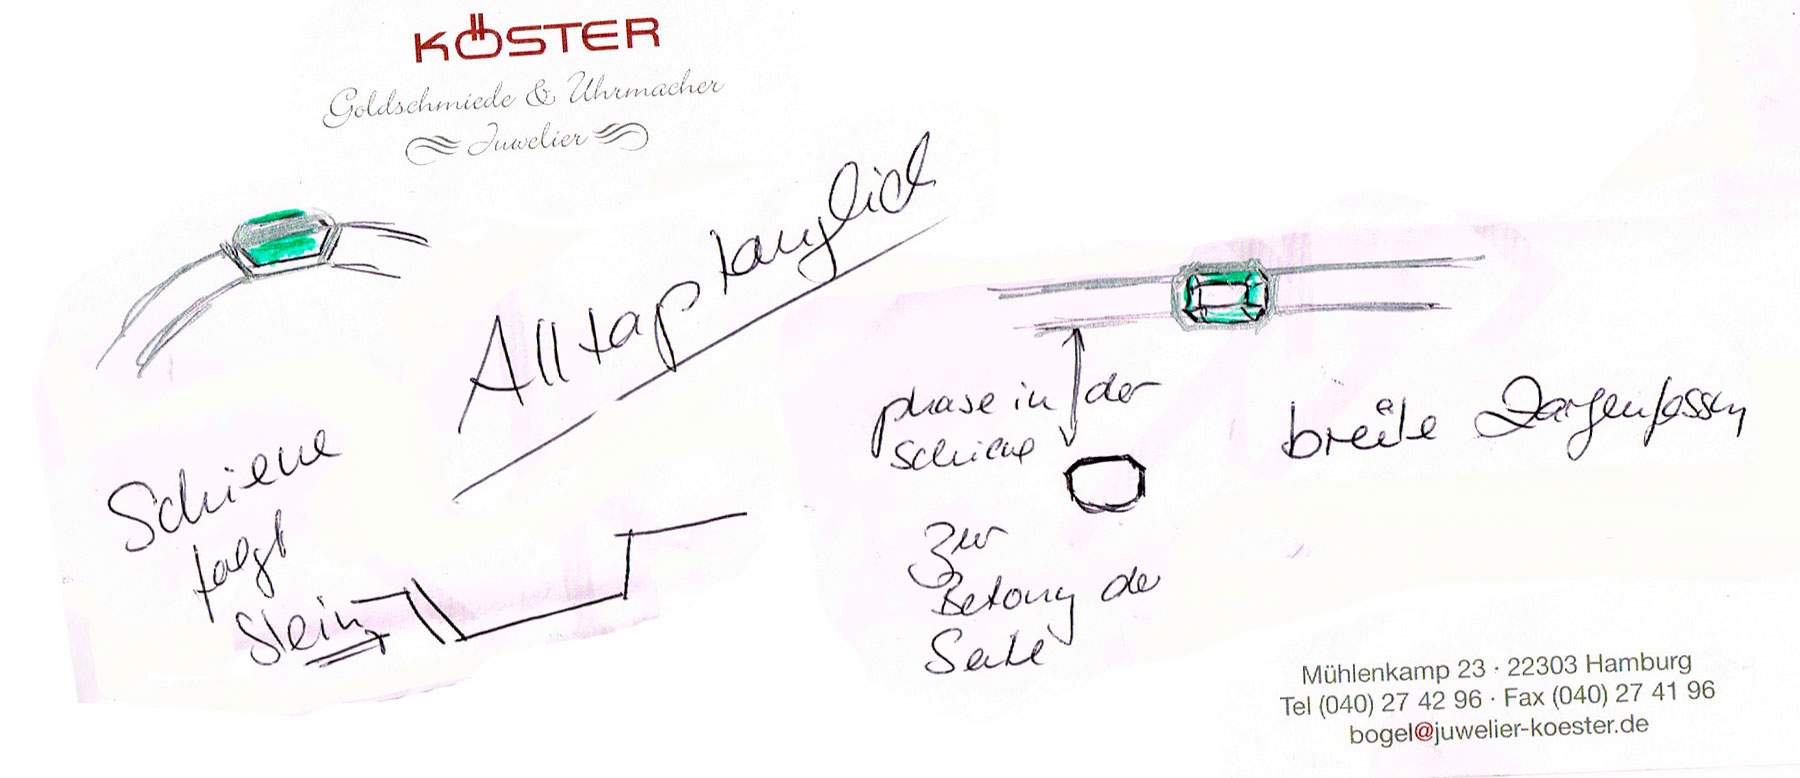 KÖSTER
Goldschmiede & Uhrmacher
Juwelier
Alltagstauglich
Schiene
folgt
Stein
phase in der
Schiene
zur
Betonung der
Seite
breite Zargenfassung
Mühlenkamp 23 · 22303 Hamburg
Tel (040) 27 42 96 · Fax (040) 27 41 96
bogel@juwelier-koester.de